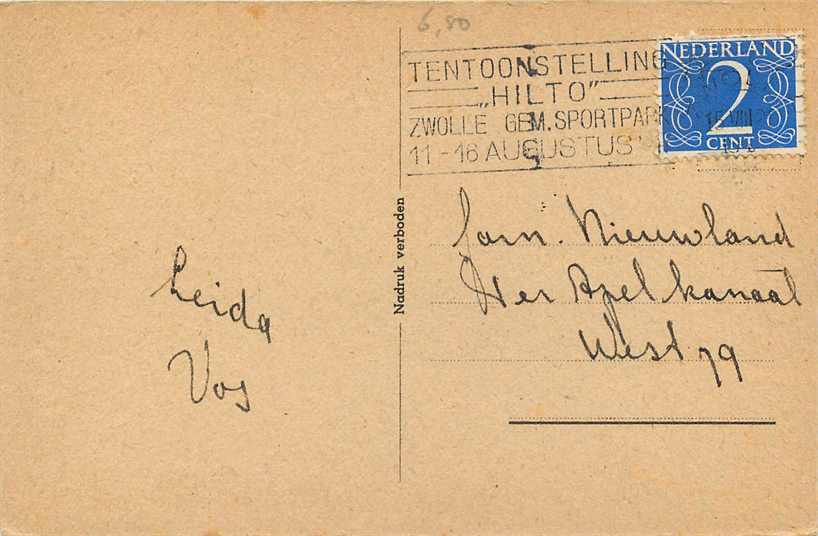 6,80
TENTOONSTELLING
„HILTO”
ZWOLLE GEM. SPORTPARK
11-16 AUGUSTUS
NEDERLAND
2
CENT
Nadruk verboden
Leida
Vos
fam. Nieuwland
Ter Apelkanaal
West 79